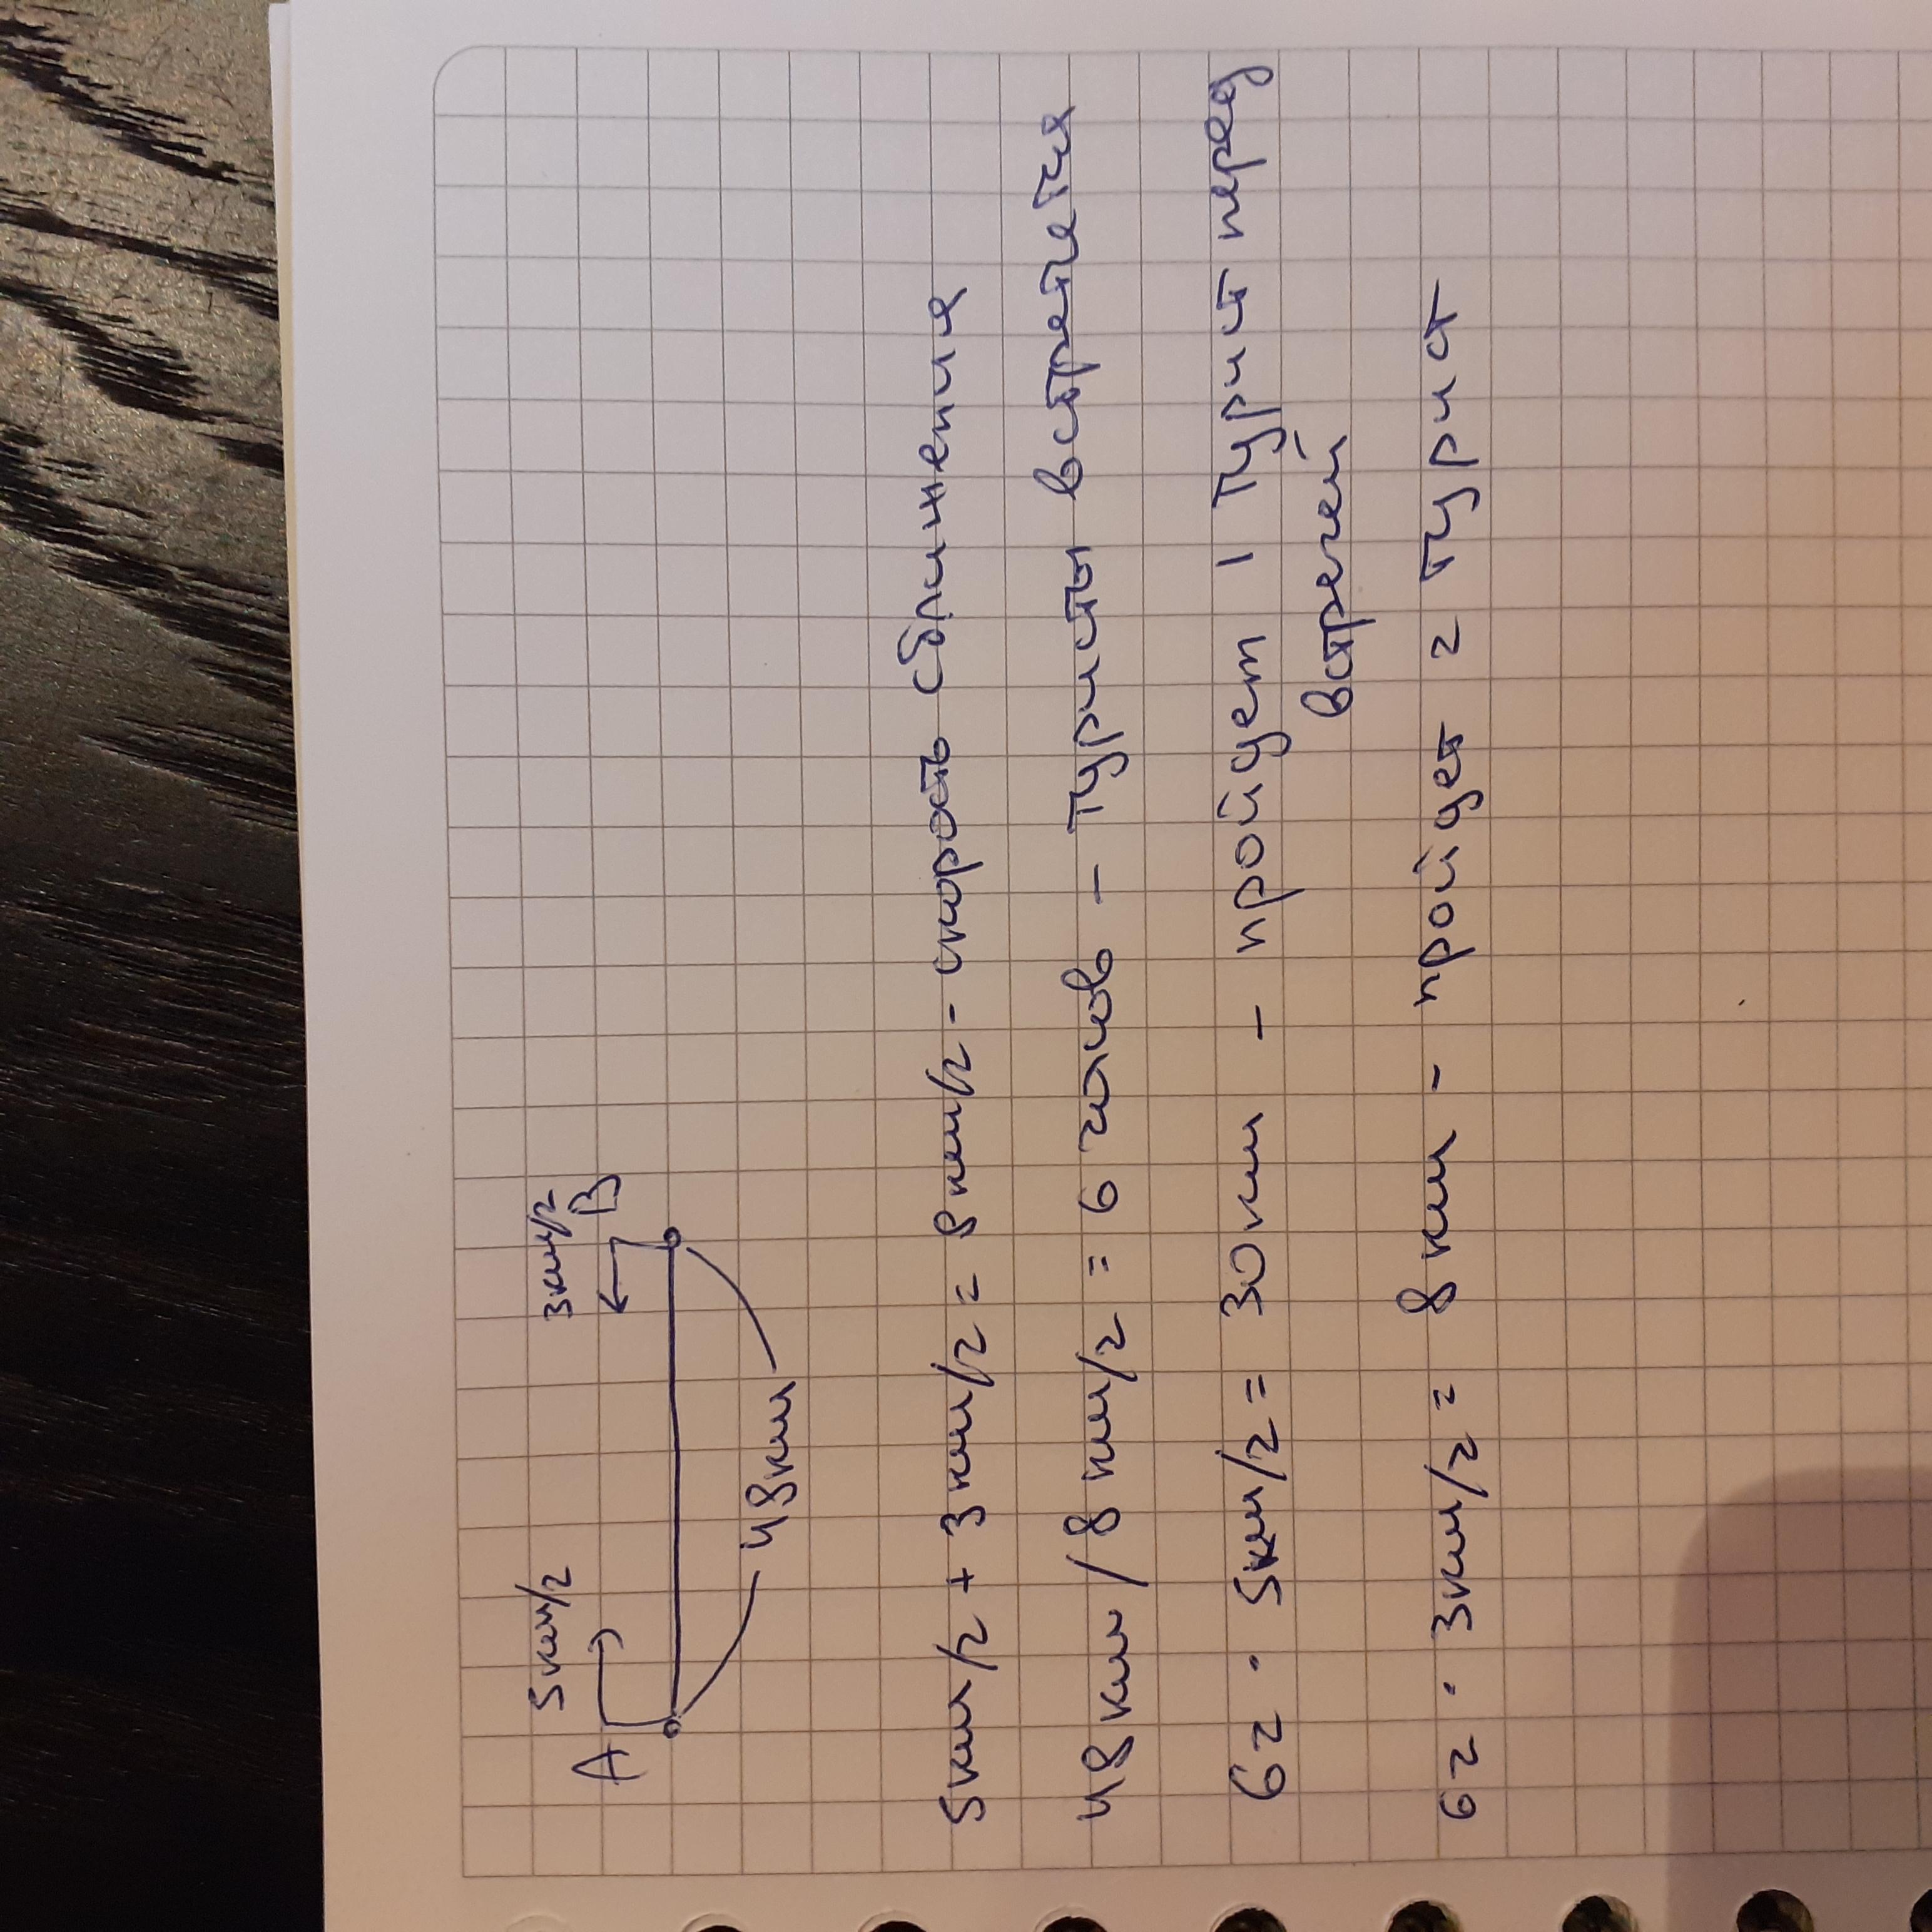 5км/г 3км/г
A B
48км
5км/г + 3км/г = 8км/г - скорость сближения
48км / 8км/г = 6 часов - туристы встретятся
6г · 5км/г = 30км - пройдет 1 турист перед
встречей
6г · 3км/г = 8км - пройдет 2 турист